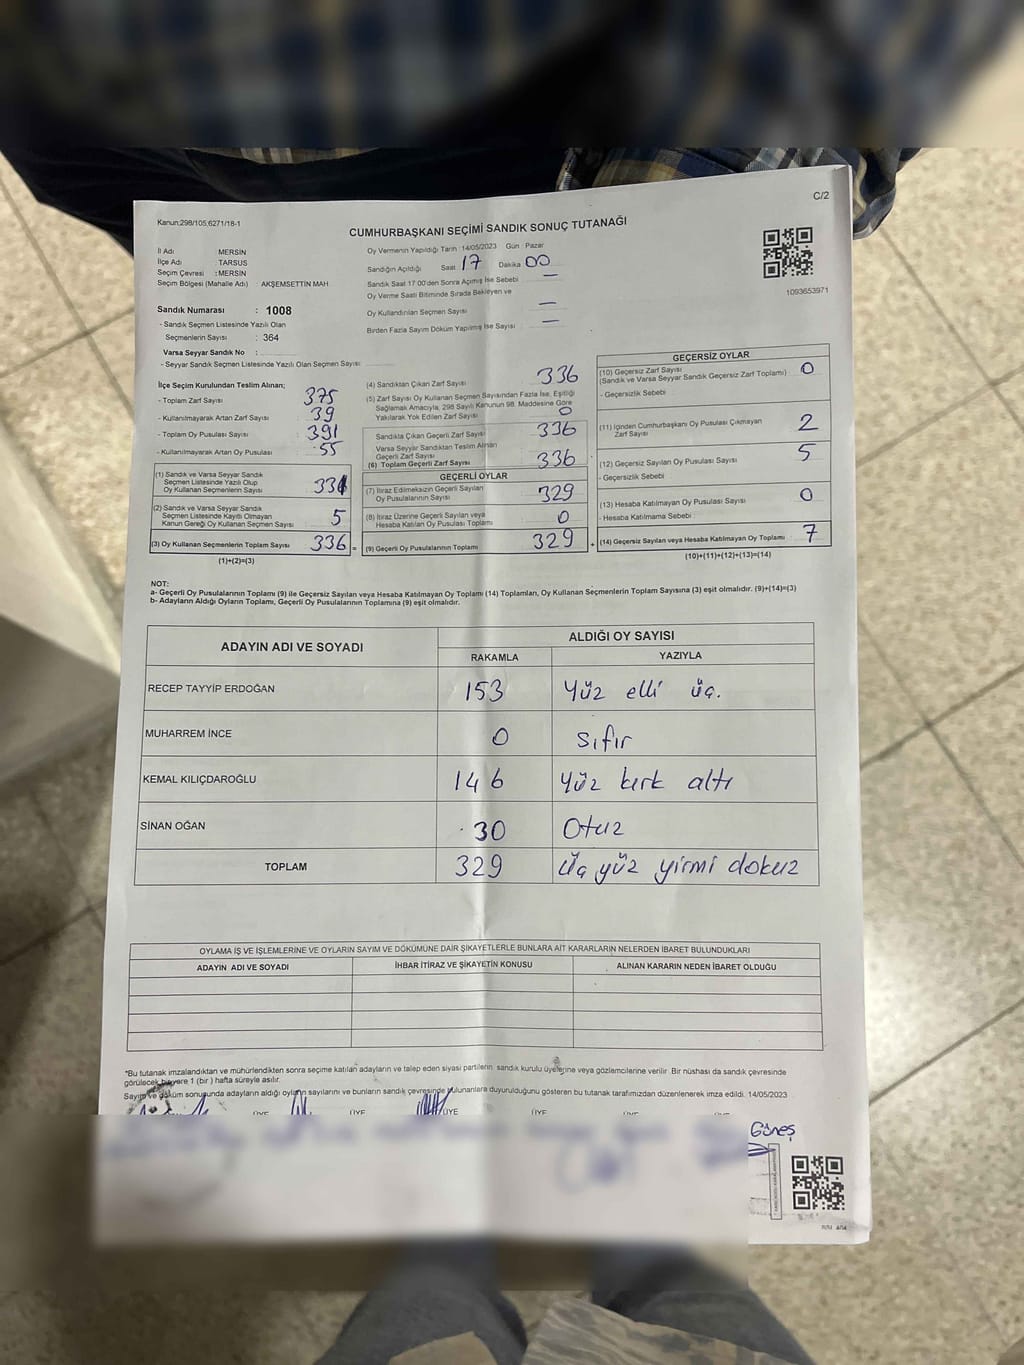 C/2
Kanun:298/105,6271/18-1
CUMHURBAŞKANI SEÇİMİ SANDIK SONUÇ TUTANAĞI
İl Adı MERSİN
İlçe Adı TARSUS
Seçim Çevresi : MERSİN
Seçim Bölgesi (Mahalle Adı) : AKŞEMSETTİN MAH.
Oy Vermenin Yapıldığı Tarih : 14/05/2023 Gün : Pazar
Sandığın Açıldığı Saat 17 Dakika 00
Sandık Saat 17:00'den Sonra Açımış İse Sebebi —
Oy Verme Saati Bitiminde Sırada Bekleyen ve
Oy Kullandırılan Seçmen Sayısı —
Birden Fazla Sayım Döküm Yapılmış İse Sayısı —
1093653971
Sandık Numarası : 1008
- Sandık Seçmen Listesinde Yazılı Olan
Seçmenlerin Sayısı : 364
Varsa Seyyar Sandık No :
- Seyyar Sandık Seçmen Listesinde Yazılı Olan Seçmen Sayısı:
İlçe Seçim Kurulundan Teslim Alınan;
- Toplam Zarf Sayısı 375
- Kullanılmayarak Artan Zarf Sayısı 39
- Toplam Oy Pusulası Sayısı 391
- Kullanılmayarak Artan Oy Pusulası 55
(1) Sandık ve Varsa Seyyar Sandık
Seçmen Listesinde Yazılı Olup
Oy Kullanan Seçmenlerin Sayısı 331
(2) Sandık ve Varsa Seyyar Sandık
Seçmen Listesinde Kayıtlı Olmayan
Kanun Gereği Oy Kullanan Seçmen Sayısı 5
(3) Oy Kullanan Seçmenlerin Toplam Sayısı 336 =
(1)+(2)=(3)
(4) Sandıktan Çıkan Zarf Sayısı 336
(5) Zarf Sayısı Oy Kullanan Seçmen Sayısından Fazla İse, Eşitliği
Sağlamak Amacıyla, 298 Sayılı Kanunun 98. Maddesine Göre
Yakılarak Yok Edilen Zarf Sayısı 0
Sandıkta Çıkan Geçerli Zarf Sayısı 336
Varsa Seyyar Sandıktan Teslim Alınan
Geçerli Zarf Sayısı
(6) Toplam Geçerli Zarf Sayısı 336
GEÇERLİ OYLAR
(7) İtiraz Edilmeksizin Geçerli Sayılan
Oy Pusulalarının Sayısı 329
(8) İtiraz Üzerine Geçerli Sayılan veya
Hesaba Katılan Oy Pusulası Toplamı 0
(9) Geçerli Oy Pusulalarının Toplamı 329 +
GEÇERSİZ OYLAR
(10) Geçersiz Zarf Sayısı 0
(Sandık ve Varsa Seyyar Sandık Geçersiz Zarf Toplamı)
- Geçersizlik Sebebi :
(11) İçinden Cumhurbaşkanı Oy Pusulası Çıkmayan
Zarf Sayısı 2
(12) Geçersiz Sayılan Oy Pusulası Sayısı 5
- Geçersizlik Sebebi :
(13) Hesaba Katılmayan Oy Pusulası Sayısı 0
- Hesaba Katılmama Sebebi :
(14) Geçersiz Sayılan veya Hesaba Katılmayan Oy Toplamı 7
(10)+(11)+(12)+(13)=(14)
NOT:
a- Geçerli Oy Pusulalarının Toplamı (9) ile Geçersiz Sayılan veya Hesaba Katılmayan Oy Toplamı (14) Toplamları, Oy Kullanan Seçmenlerin Toplam Sayısına (3) eşit olmalıdır. (9)+(14)=(3)
b- Adayların Aldığı Oyların Toplamı, Geçerli Oy Pusulalarının Toplamına (9) eşit olmalıdır.
ADAYIN ADI VE SOYADI ALDIĞI OY SAYISI
RAKAMLA YAZIYLA
RECEP TAYYİP ERDOĞAN 153 Yüz elli üç.
MUHARREM İNCE 0 sıfır
KEMAL KILIÇDAROĞLU 146 Yüz kırk altı
SİNAN OĞAN 30 Otuz
TOPLAM 329 Üç yüz yirmi dokuz
OYLAMA İŞ VE İŞLEMLERİNE VE OYLARIN SAYIM VE DÖKÜMÜNE DAİR ŞİKAYETLERLE BUNLARA AİT KARARLARIN NELERDEN İBARET BULUNDUKLARI
ADAYIN ADI VE SOYADI İHBAR İTİRAZ VE ŞİKAYETİN KONUSU ALINAN KARARIN NEDEN İBARET OLDUĞU
*Bu tutanak imzalandıktan ve mühürlendikten sonra seçime katılan adayların ve talep eden siyasi partilerin sandık kurulu üyelerine veya gözlemcilerine verilir. Bir nüshası da sandık çevresinde
görülecek bir yere 1 (bir ) hafta süreyle asılır.
Sayım ve döküm sonucunda adayların aldığı oyların sayılarını ve bunların sandık çevresinde bulunanlara duyurulduğunu gösteren bu tutanak tarafımızdan düzenlenerek imza edildi. 14/05/2023
ÜYE ÜYE ÜYE ÜYE ÜYE ÜYE
Güneş